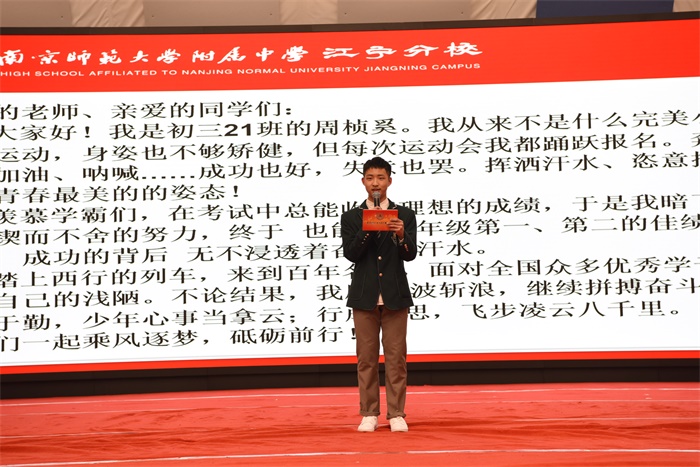 南京师范大学附属中学 江宁分校
HIGH SCHOOL AFFILIATED TO NANJING NORMAL UNIVERSITY JIANGNING CAMPUS
的老师、亲爱的同学们：
大家好！我是初三21班的周桢奚。我从来不是什么完美
运动，身姿也不够矫健，但每次运动会我都踊跃报名。
加油、呐喊……成功也好，失 也罢。挥洒汗水、恣意
青春最美的的姿态！
羡慕学霸们，在考试中总能收 理想的成绩，于是我暗
锲而不舍的努力，终于 也能 年级第一、第二的佳绩
成功的背后 无不浸透着 汗水。
踏上西行的列车，来到百年 面对全国众多优秀学
自己的浅陋。不论结果，我 波斩浪，继续拼搏奋斗
于勤，少年心事当拿云；行 思，飞步凌云八千里。
们一起乘风逐梦，砥砺前行！